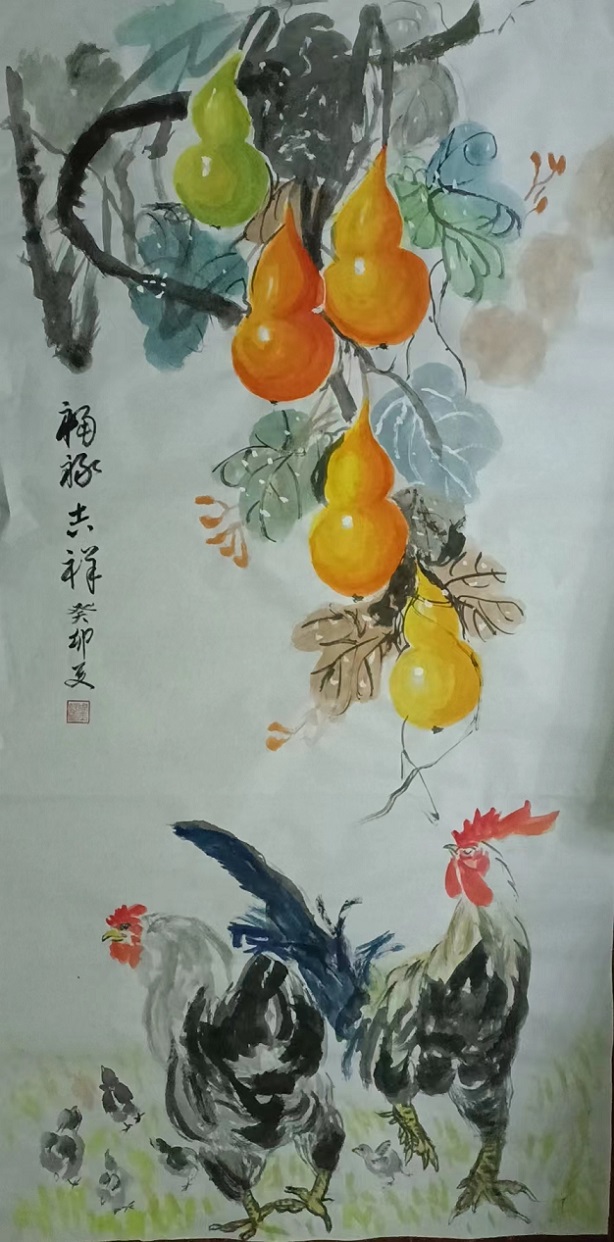 福禄吉祥 癸卯夏